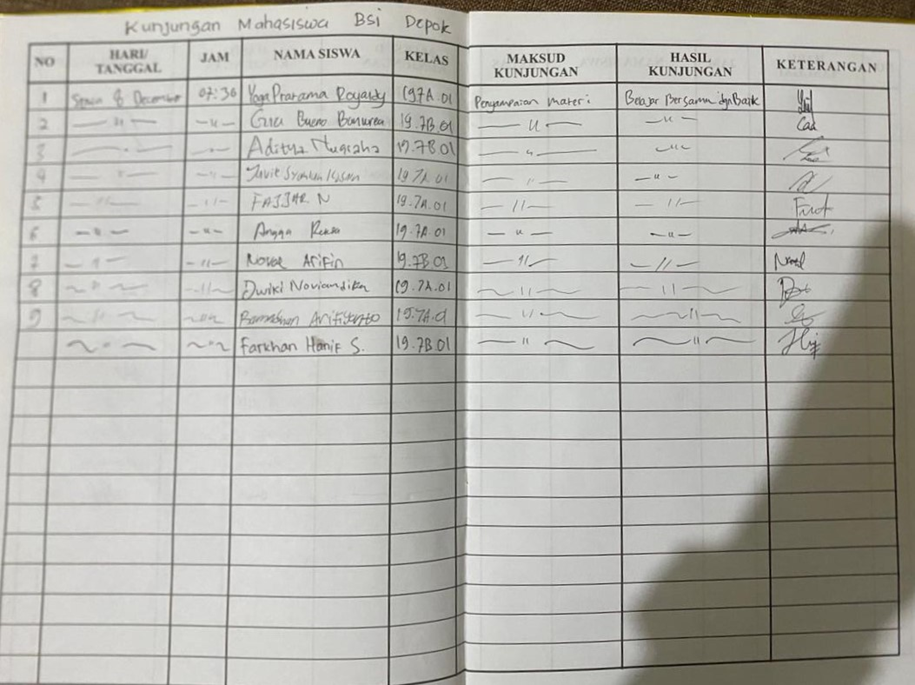 Kunjungan Mahasiswa Bsi Depok
NO HARI/ TANGGAL JAM NAMA SISWA KELAS MAKSUD KUNJUNGAN HASIL KUNJUNGAN KETERANGAN
1 Senin 8 December 07:30 Yoga Pratama 19.7A.01 Penyampaian Materi Belajar Bersama dgn Baik
2 — " — — " — 19.7B.01 — " — — " —
3 — " — — " — Aditya Nugraha 19.7B.01 — " — — " —
4 — " — — " — 19.7A.01 — " — — " —
5 — " — — " — FAJJAR N 19.7A.01 — " — — " —
6 — " — — " — Angga 19.7A.01 — " — — " —
7 — " — — " — Noval Arifin 19.7B.01 — " — — " —
8 — " — — " — Dwiki Noviandika 19.7A.01 — " — — " —
9 — " — — " — 19.7A.01 — " — — " —
— " — — " — Farkhan Hanif S. 19.7B.01 — " — — " —